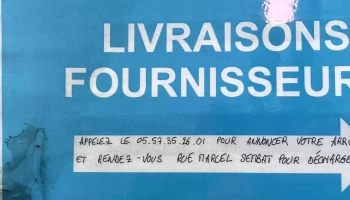 LIVRAISONS
FOURNISSEUR
APPELEZ LE 05.57.35.26.01 POUR ANNONCER VOTRE ARRI
ET RENDEZ-VOUS RUE MARCEL SEMBAT POUR DÉCHARGE